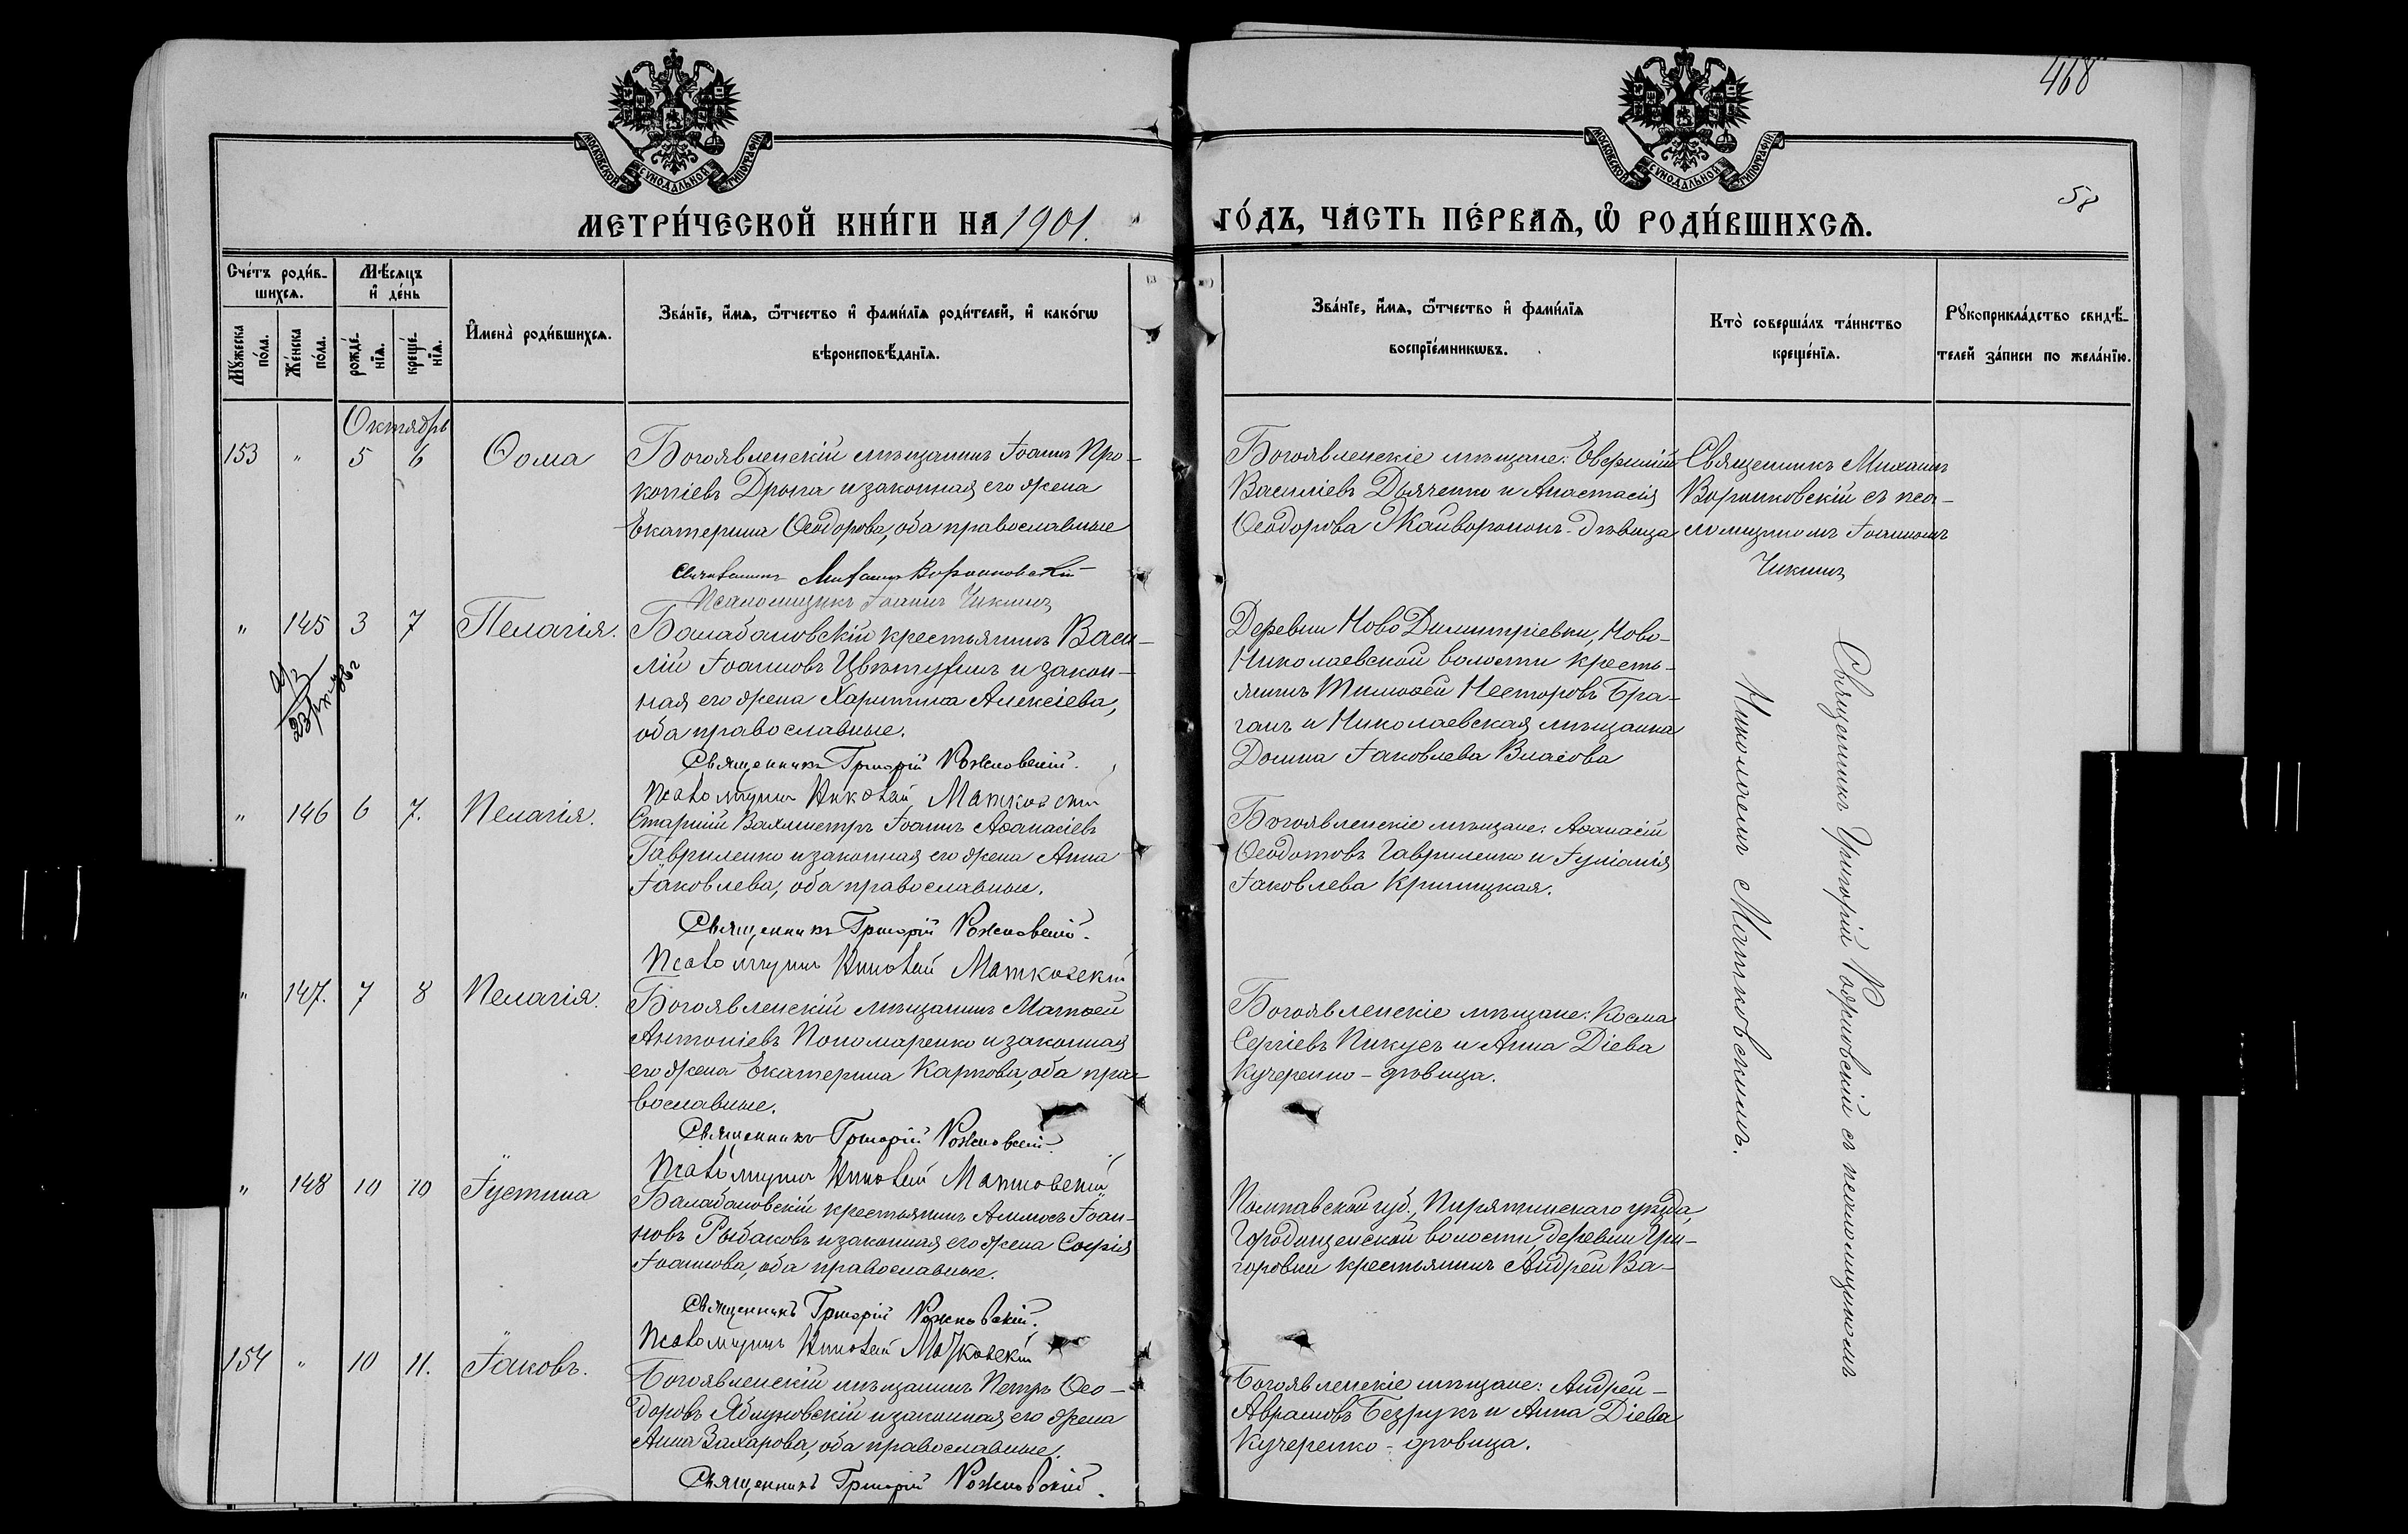 468
МОСКОВСКОЙ СѴНОДАЛЬНОЙ ТИПОГРАФІИ
МОСКОВСКОЙ СѴНОДАЛЬНОЙ ТИПОГРАФІИ
58
МЕТРИ́ЧЕСКОЙ КНИ́ГИ НА 1901. ГО́ДЪ, ЧА́СТЬ ПЕ́РВАѦ, Ѽ РОДИ́ВШИХСѦ.
Сче́тъ роди́в-
шихсѧ.
Мѣ́сѧцъ
и҆ де́нь
Мꙋ́жеска
по́ла.
Же́нска
по́ла.
рожде́-
нїѧ.
креще́-
нїѧ.
И҆мена̀ роди́вшихсѧ.
Зва́нїе, и҆́мѧ, ѻ҆́тчество и҆ фами́лїѧ роди́телей, и҆ како́гѡ
вѣроисповѣ́данїѧ.
Зва́нїе, и҆́мѧ, ѻ҆́тчество и҆ фами́лїѧ
воспрїе́мникѡвъ.
Кто̀ соверша́лъ та́инство
креще́нїѧ.
Рꙋкоприкла́дство свидѣ́-
телей за́писи по жела́нїю.
Октябрь
153 " 5 6 Ѳома
Богоявленскій мѣщанинъ Іоаннъ Про-
копіевъ Дрыга и законная его жена
Екатерина Ѳеодорова, оба православные
Священникъ Михаилъ Воронковскій
Псаломщикъ Іоаннъ Чикинъ
Богоявленскіе мѣщане: Евфимій
Василіевъ Дьяченко и Анастасія
Ѳеодорова Жайворонокъ-дѣвица
Священникъ Михаилъ
Воронковскій съ пса-
ломщикомъ Іоанномъ
Чикинъ
" 145 3 7 Пелагія.
Балабановскій крестьянинъ Васи-
лій Іоанновъ и закон-
ная его жена Харитина Алексіева,
оба православные.
Священникъ Григорій Рожновскій.
Псаломщикъ Николай Матковскій
Деревни Ново Димитріевки, Ново-
Николаевской волости кресть-
янинъ Тимоѳей Несторовъ Бра-
ганъ и Николаевская мѣщанка
Домна Іаковлева Власова
" 146 6 7. Пелагія.
Старшій Вахмистръ Іоаннъ Аѳанасіевъ
Гавриленко и законная его жена Анна
Іаковлева, оба православные.
Священникъ Григорій Рожновскій.
Псаломщикъ Николай Матковскій
Богоявленскіе мѣщане: Аѳанасій
Ѳеодотовъ Гавриленко и Іуліанія
Іаковлева Криницкая.
" 147. 7 8 Пелагія.
Богоявленскій мѣщанинъ Матѳей
Антоніевъ Пономаренко и законная
его жена Екатерина Карпова, оба пра-
вославные.
Священникъ Григорій Рожновскій.
Псаломщикъ Николай Матковскій
Богоявленскіе мѣщане: Косма
Сергіевъ Пикусъ и Анна Діева
Кучеренко-дѣвица.
" 148 10 10 Іустина
Балабановскій крестьянинъ Аммосъ Іоан-
новъ Рыбаковъ и законная его жена Софія
Іоаннова, оба православные.
Священникъ Григорій Рожновскій.
Псаломщикъ Николай Матковскій
Полтавской губ., Пирятинскаго уѣзда,
Городищенской волости, деревни Гри-
горовки крестьянинъ Андрей Ва-
154 " 10 11. Іаковъ.
Богоявленскій мѣщанинъ Петръ Ѳео-
доровъ Яблуновскій и законная его жена
Анна Захарова, оба православные.
Священникъ Григорій Рожновскій.
Богоявленскіе мѣщане: Андрей
Авраамовъ Безрукъ и Анна Діева
Кучеренко-дѣвица.
Священникъ Григорій Рожновскій съ псаломщикомъ
Николаемъ Матковскимъ.